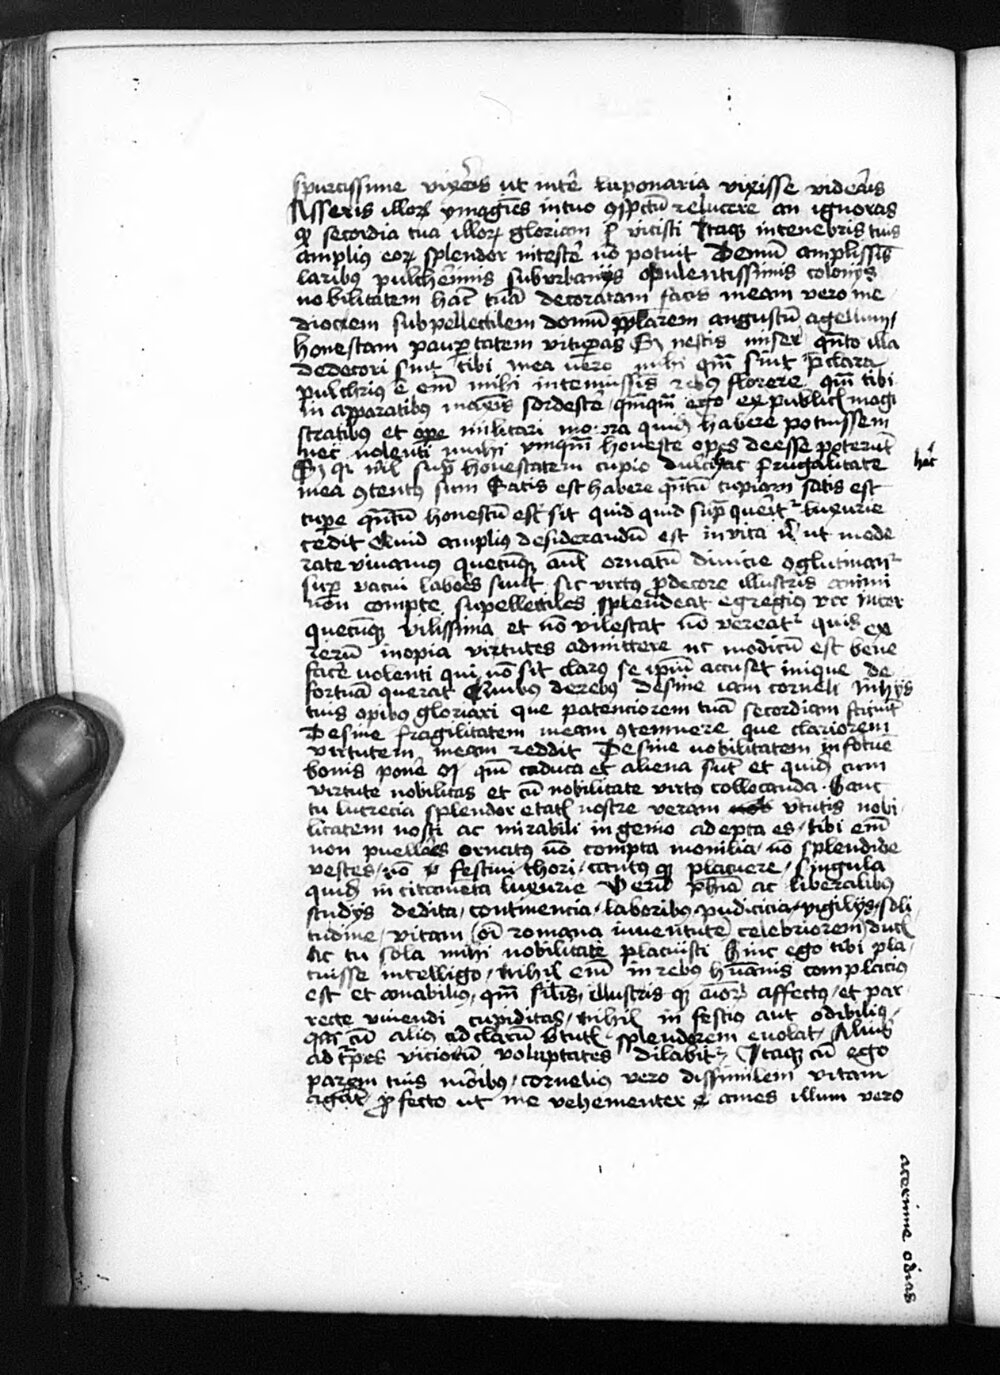 spurcissime vixeris ut inter luponaria vixisse videaris
Asseris illorum ymagines in tuo conspectu relucere an ignoras
quod secordia tua illorum gloriam vicisti Itaque in tenebris tuis
amplius eorum splendor non potuit Demum amplissimis
laribus pulcherrimis suburbanijs opulentissimis colonijs
nobilitatem hanc tuam decoratam facis meam vero me
diocrem subpellectilem domum popularem angustum agellum
honestam paupertatem vituperas nescis miser quanto illa
dedecori sint tibi mea vero mihi quam sint preclara
pulchrius est enim mihi in tenuissimis rebus florere quam tibi
in apparatibus maximis sordescere quamquam ego ex publicis magi
stratibus et ope militari quid habere potuissem
nec volenti mihi umquam honeste opes deesse poterunt
qui nil supra honestatem cupio dulci hac frugalitate
mea contentus sum Satis est habere quantum cupiam satis est
cupere quantum honestum est sit quid quid supra queritur luxurie
cedit Quid amplius desiderandum est in vita ut mode
rate vivamus quecumque aut ornatum divicie conglutinant
super vacui labores sunt sic virtus predecore illustris animi
non compte supellectiles splendeat egregius vir inter
quecumque vilissima et non vilescat non vereatur quis ex
rerum inopia virtutes admittere ut modicum est bene
facere volenti qui non sit clarus se ipsum accuset inique de
fortuna querat Quibus de rebus desine iam corneli in hijs
tuis opibus gloriari que patenciorem tuam secordiam
Desine fragilitatem meam contemnere que clariorem
virtutem meam reddit Desine nobilitatem in fortune
bonis ponere quam caduca et aliena sunt et quid cum
virtute nobilitas et cum nobilitate virtus collocanda Hanc
tu lucrecia splendor etatis nostre veram virtutis nobi
litatem nosti ac mirabili ingenio adepta es tibi enim
non puellares ornatus non compta monilia non splendide
vestes non festivi thori cantus que placuere singula
quidem incitamenta luxurie Verum ac liberalibus
studijs dedita continencia laboribus pudicicia vigilijs soli
tudine vitam omni romana iuventute celebriorem
Ac tu sola mihi nobilitate placuisti Hinc ego tibi pla
cuisse intelligo Nihil enim in rebus humanis complacius
est et amabilius quam similis illustris que amorum affectus et par
recte vivendi cupiditas Nihil infestius aut odibilius
quam cum alius ad clarum virtutis splendorem evolat Alius
ad turpes viciorum voluptates dilabitur Itaque cum ego
parem tuis moribus cornelius vero dissimilem vitam
agat profecto ut me vehementer ames illum vero
hac
acerrime odias